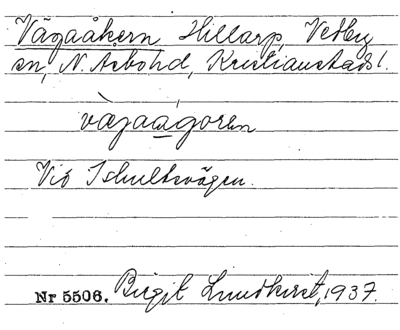 Vägaåkern Hillarp, Vedby
sn, N. Åsbohd, Kristianstads l.
vä̀jaa̲goren
Vid Ishultsvägen.
Nr 5506. Birgit Lundkvist, 1937.